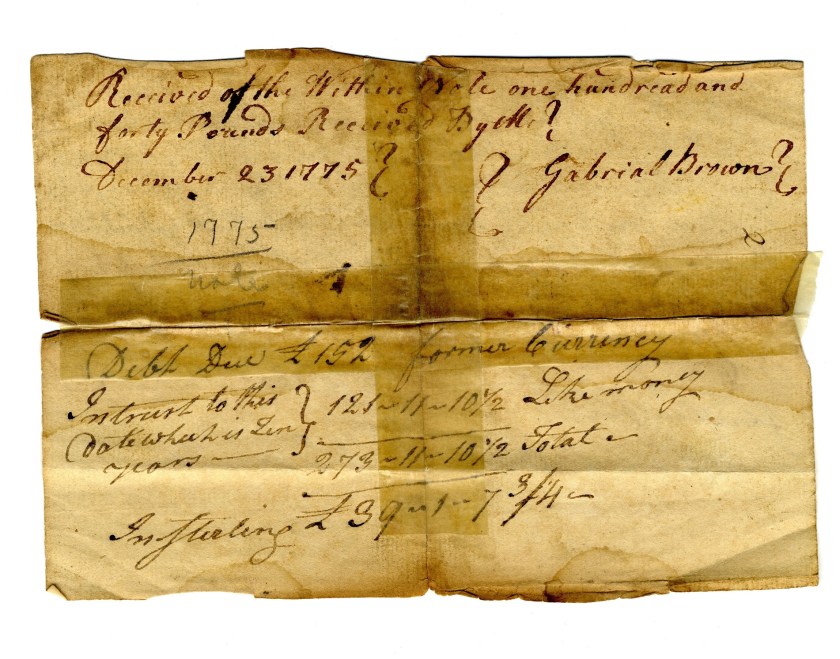 Received of the Within Note one hundread and
forty Pounds Received By Me
December 23 1775
Gabrial Brown
1775
note
Debt Due £152 former Currency
Intrust to this
Date which is Ten
years
121-11-10½ Like money
273-11-10½ Total
In Sterling £39-1-7 3/4